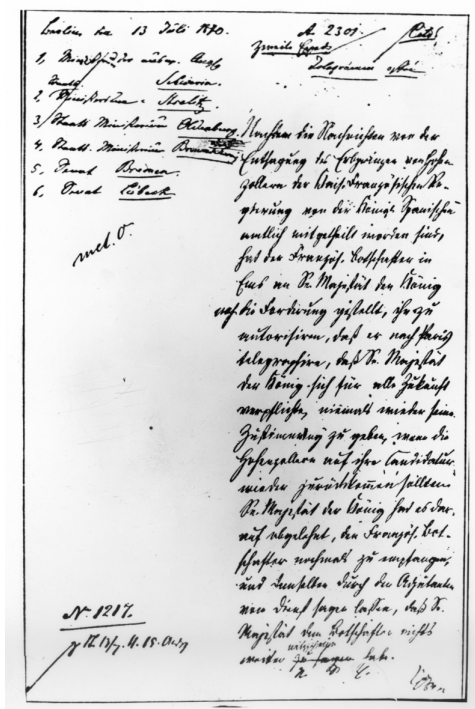 Berlin den 13 Juli 1870.
A. 2301.
Cito!
Telegramm
Schwerin.
2, Ministerium – Strelitz.
3, Staats Ministerium Oldenburg.
4. Staats. Ministerium Braunschweig
5. Senat Bremen.
6. Senat Lübeck.
Nachdem die Nachrichten von der
Entsagung des Erbprinzen von Hohen
zollern der Kais. Französischen Re-
gierung von der Königl. Spanischen
amtlich mitgetheilt worden sind,
hat der Französ. Botschafter in
Ems an Se. Majestät den König
noch die Forderung gestellt, ihn zu
autorisiren, daß er nach Paris
telegraphire, daß Se. Majestät
der König sich für alle Zukunft
verpflichte, niemals wieder seine
Zustimmung zu geben, wenn die
Hohenzollern auf ihre Candidatur
wieder zurückkommen sollten.
Se. Majestät der König hat es dar-
auf abgelehnt, den Französ. Bot-
schafter nochmals zu empfangen,
und demselben durch den Adjutanten
vom Dienst sagen lassen, daß Se.
Majestät dem Botschafter nichts
weiter mitzutheilen habe.
N° 1217.